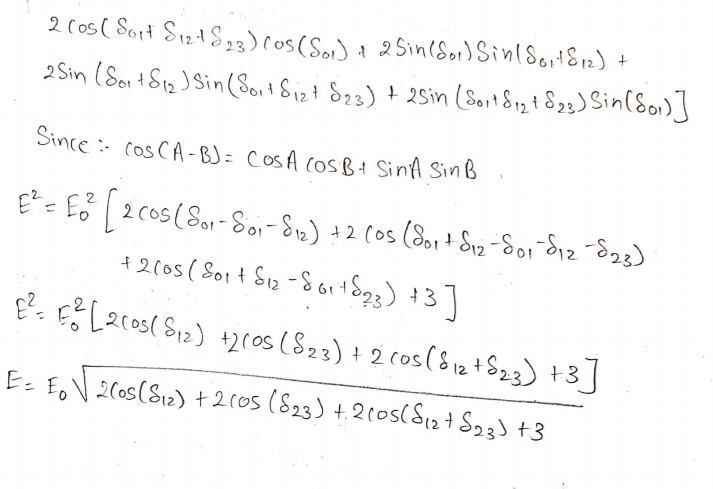 2 cos(δ01+ δ12+δ23) cos(δ01) + 2 Sin(δ01) Sin(δ01+δ12) +
2Sin (δ01+δ12) Sin(δ01+δ12+ δ23) + 2Sin (δ01+δ12+δ23) Sin(δ01)]
Since :- cos(A-B)= cosA cosB+ SinA SinB
E²= E0² [2cos(δ01-δ01-δ12) +2 cos (δ01+δ12-δ01-δ12-δ23)
+2cos(δ01+ δ12 -δ01+δ23) +3]
E²= E0² [2cos(δ12) +2cos(δ23) + 2 cos(δ12+δ23) +3]
E= E0 √2cos(δ12) +2cos (δ23) + 2cos(δ12+δ23) +3